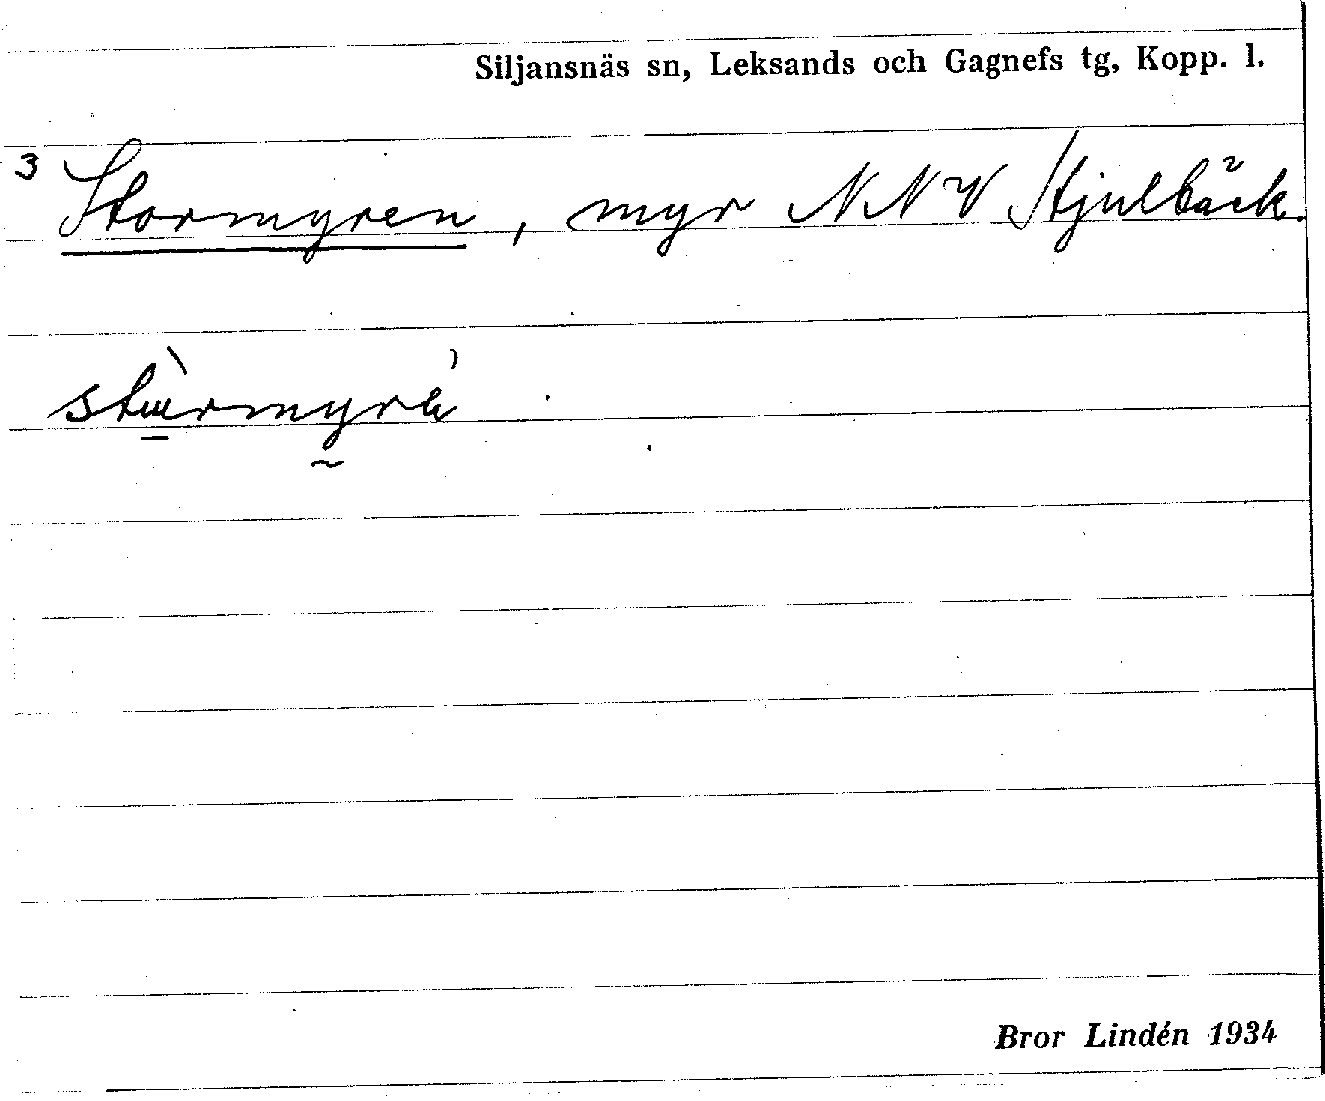 Siljansnäs sn, Leksands och Gagnefs tg, Kopp. l.
3 Stormyren, myr NNV Hjulbäck.
Bror Lindén 1934